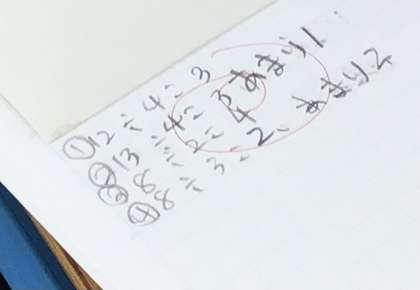 ① 12÷4=3
② 13÷4=3あまり1
③ 8÷2=4
④ 8÷3=2あまり2